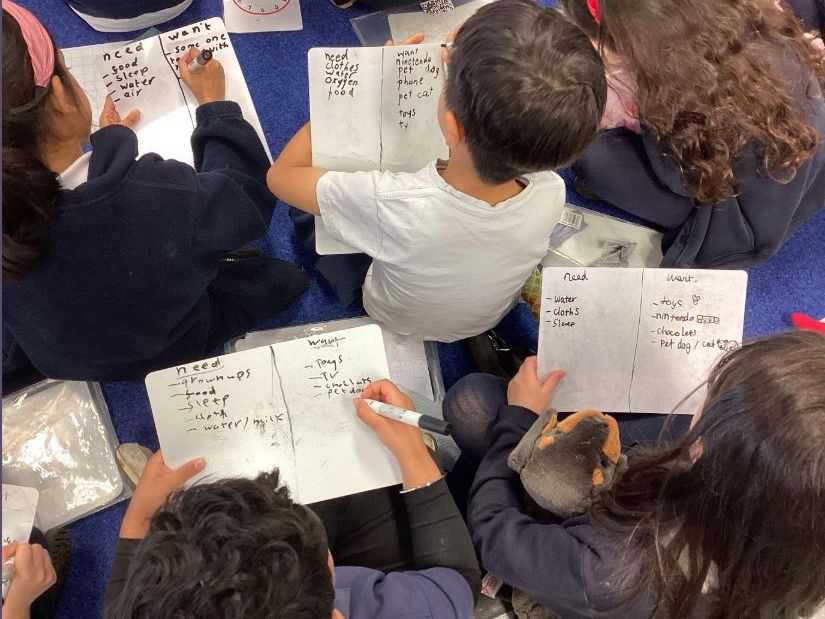 need
- food
- sleep
- water
- air
want
- some one
with
need
clothes
water
oxygen
food
want
nintendo
pet dog
phone
pet cat
toys
tv
need
- water
- cloths
- sleep
want
- toys
- nintendo
- chocolets
- pet dog / cat
need
- grownups
- food
- sleep
- water / milk
want
- Toys
- TV
- choclats
- pet dog